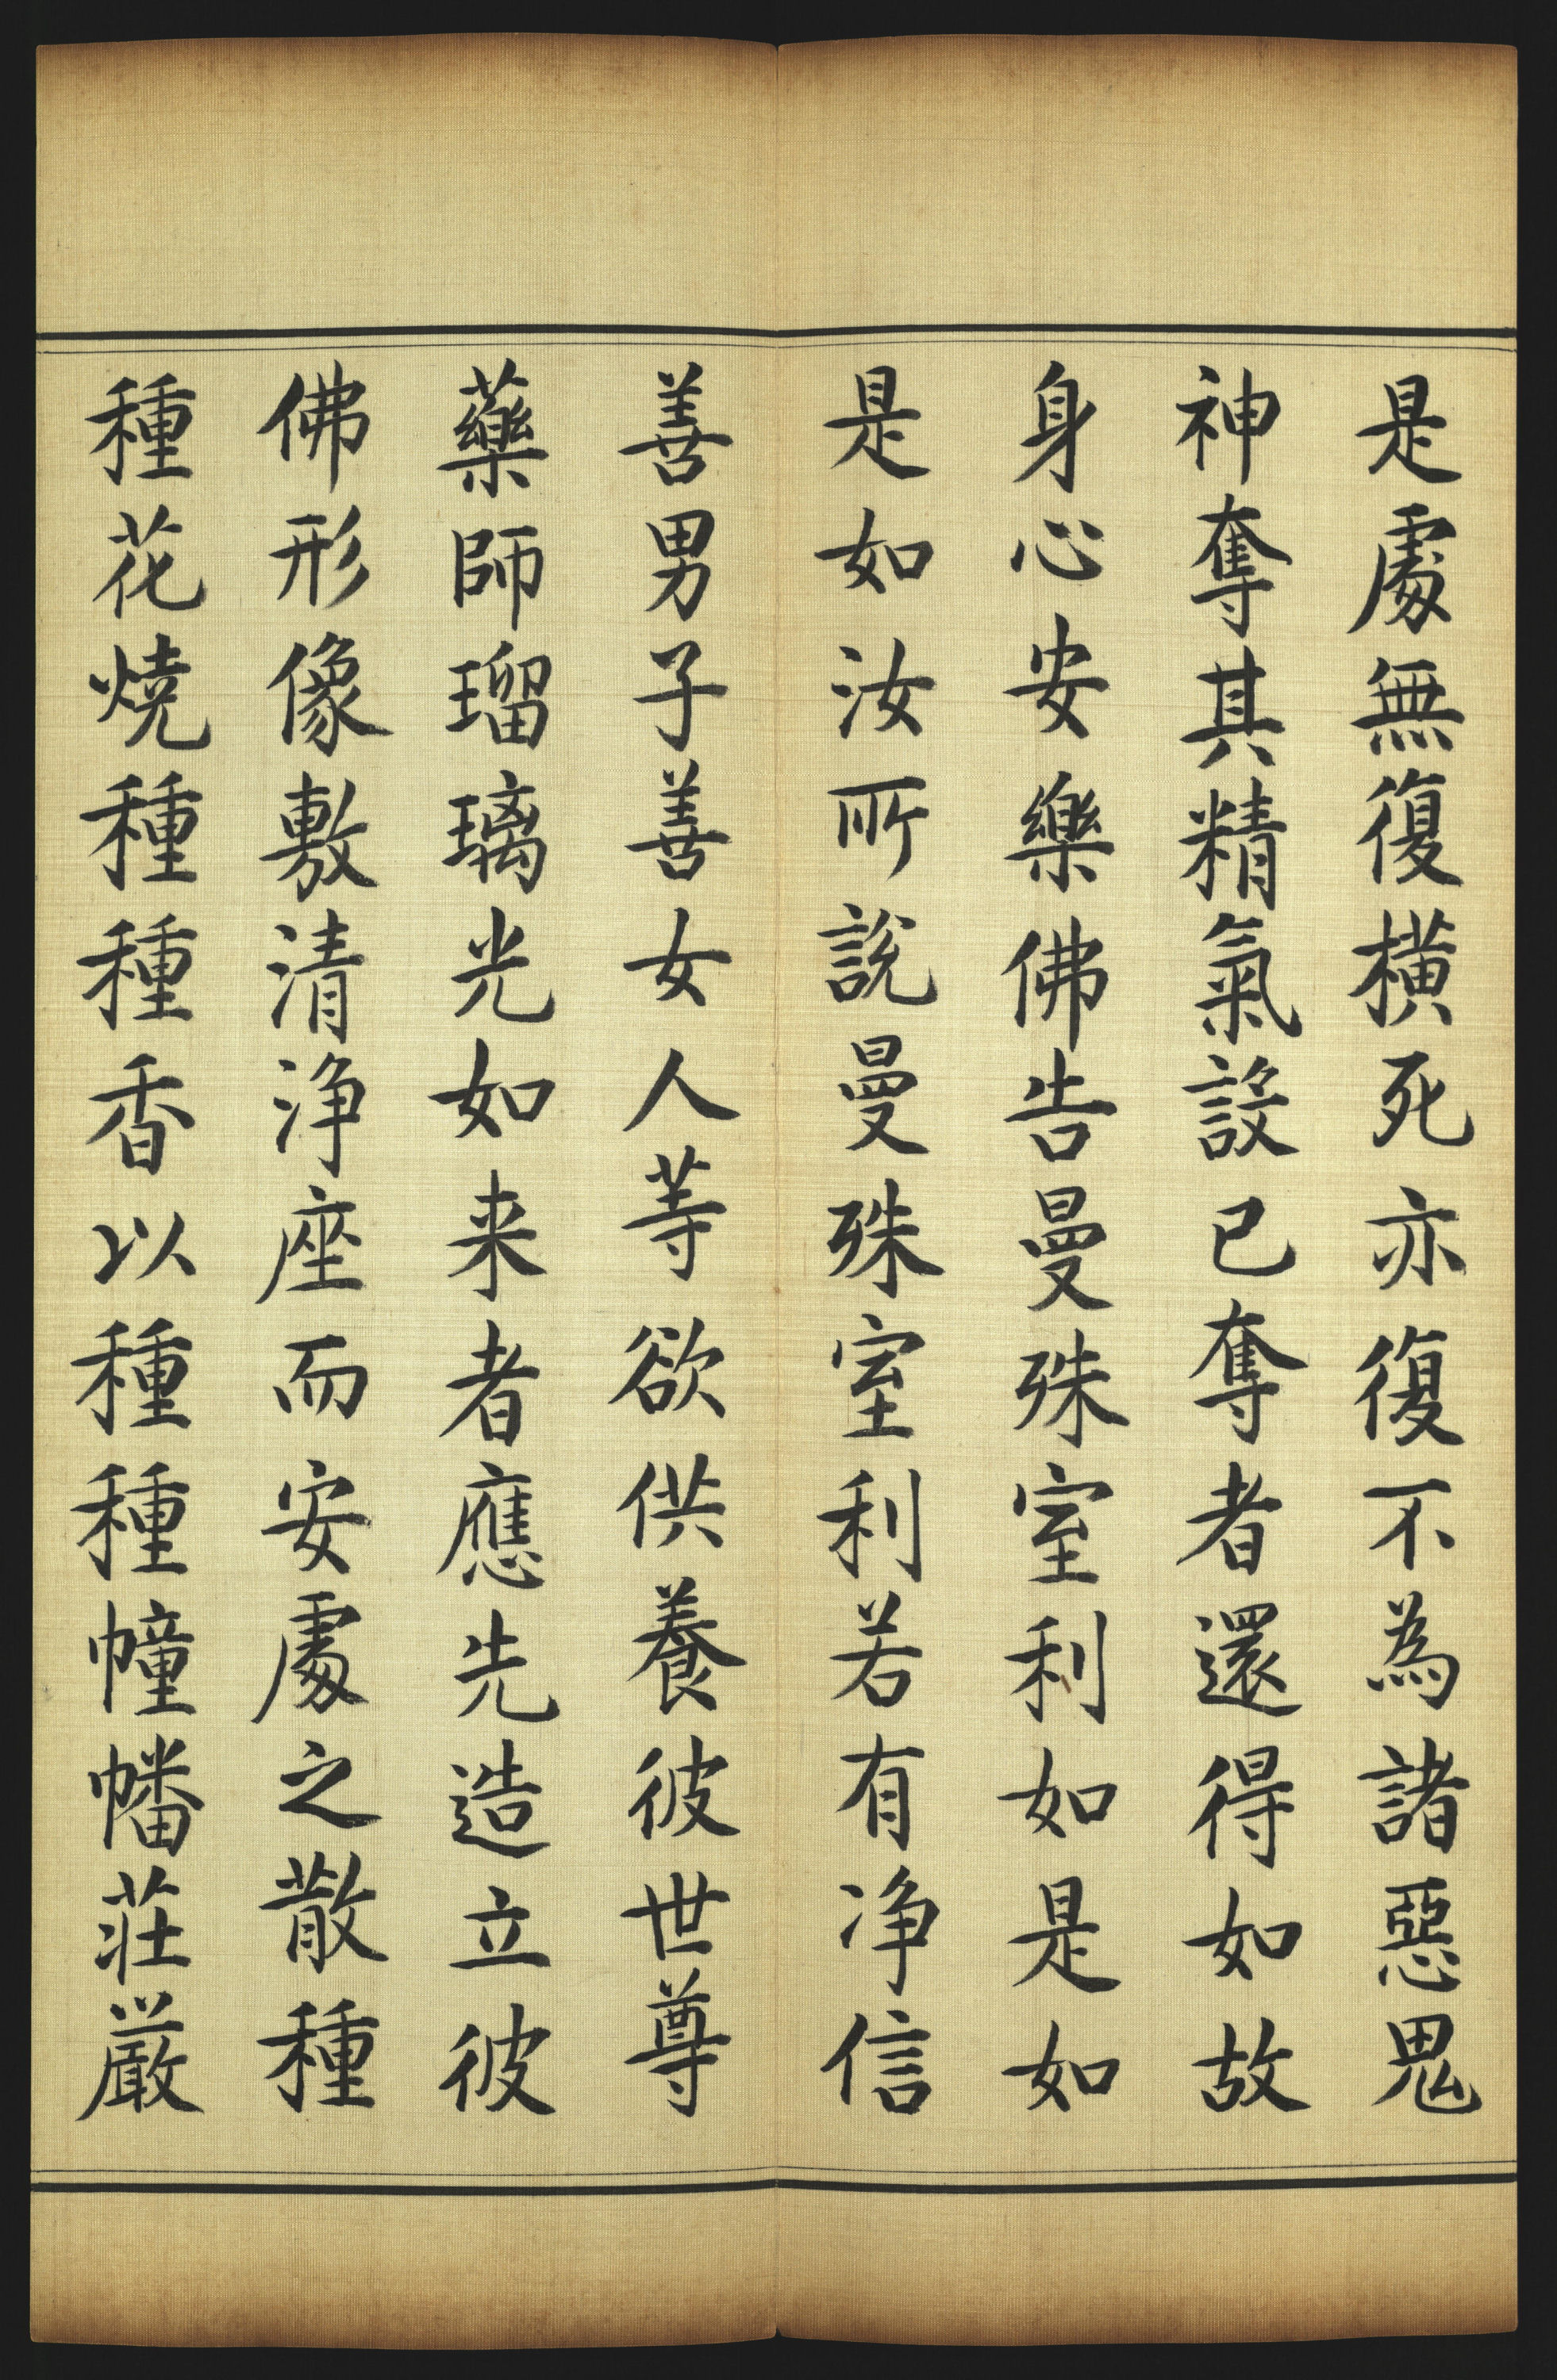 是處無復橫死亦復不為諸惡鬼
神奪其精氣設已奪者還得如故
身心安樂佛告曼殊室利如是如
是如汝所說曼殊室利若有净信
善男子善女人等欲供養彼世尊
藥師瑠璃光如来者應先造立彼
佛形像敷清淨座而安處之散種
種花燒種種香以種種幢幡莊嚴